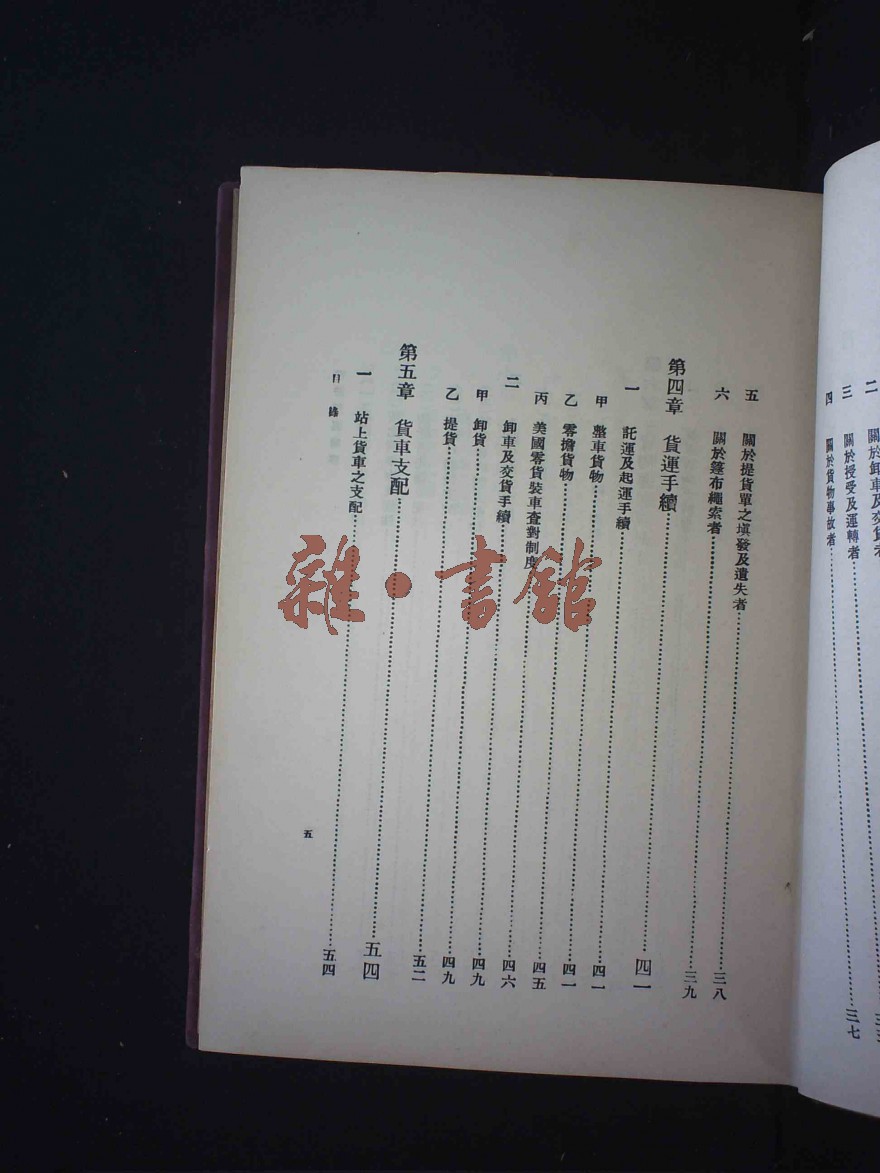 二 關於卸車及交貨者
三 關於授受及運轉者
四 關於貨物事故者……三七
五 關於提貨單之塡發及遺失者……三八
六 關於篷布繩索者……三九
第四章 貨運手續……四一
一 託運及起運手續……四一
甲 整車貨物……四一
乙 零擔貨物……四五
丙 美國零貨裝車查對制度……四六
二 卸車及交貨手續……四九
甲 卸貨……四九
乙 提貨……五二
第五章 貨車支配……五四
一 站上貨車之支配……五四
目錄
五
雜·書館